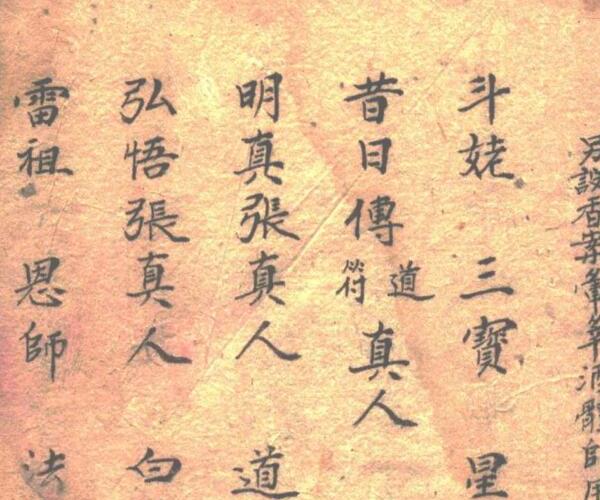 另設香案葷酒師
斗姥 三寶 星
昔日傳道符真人
明真張真人 道
弘悟張真人 白
雷祖 恩師 法